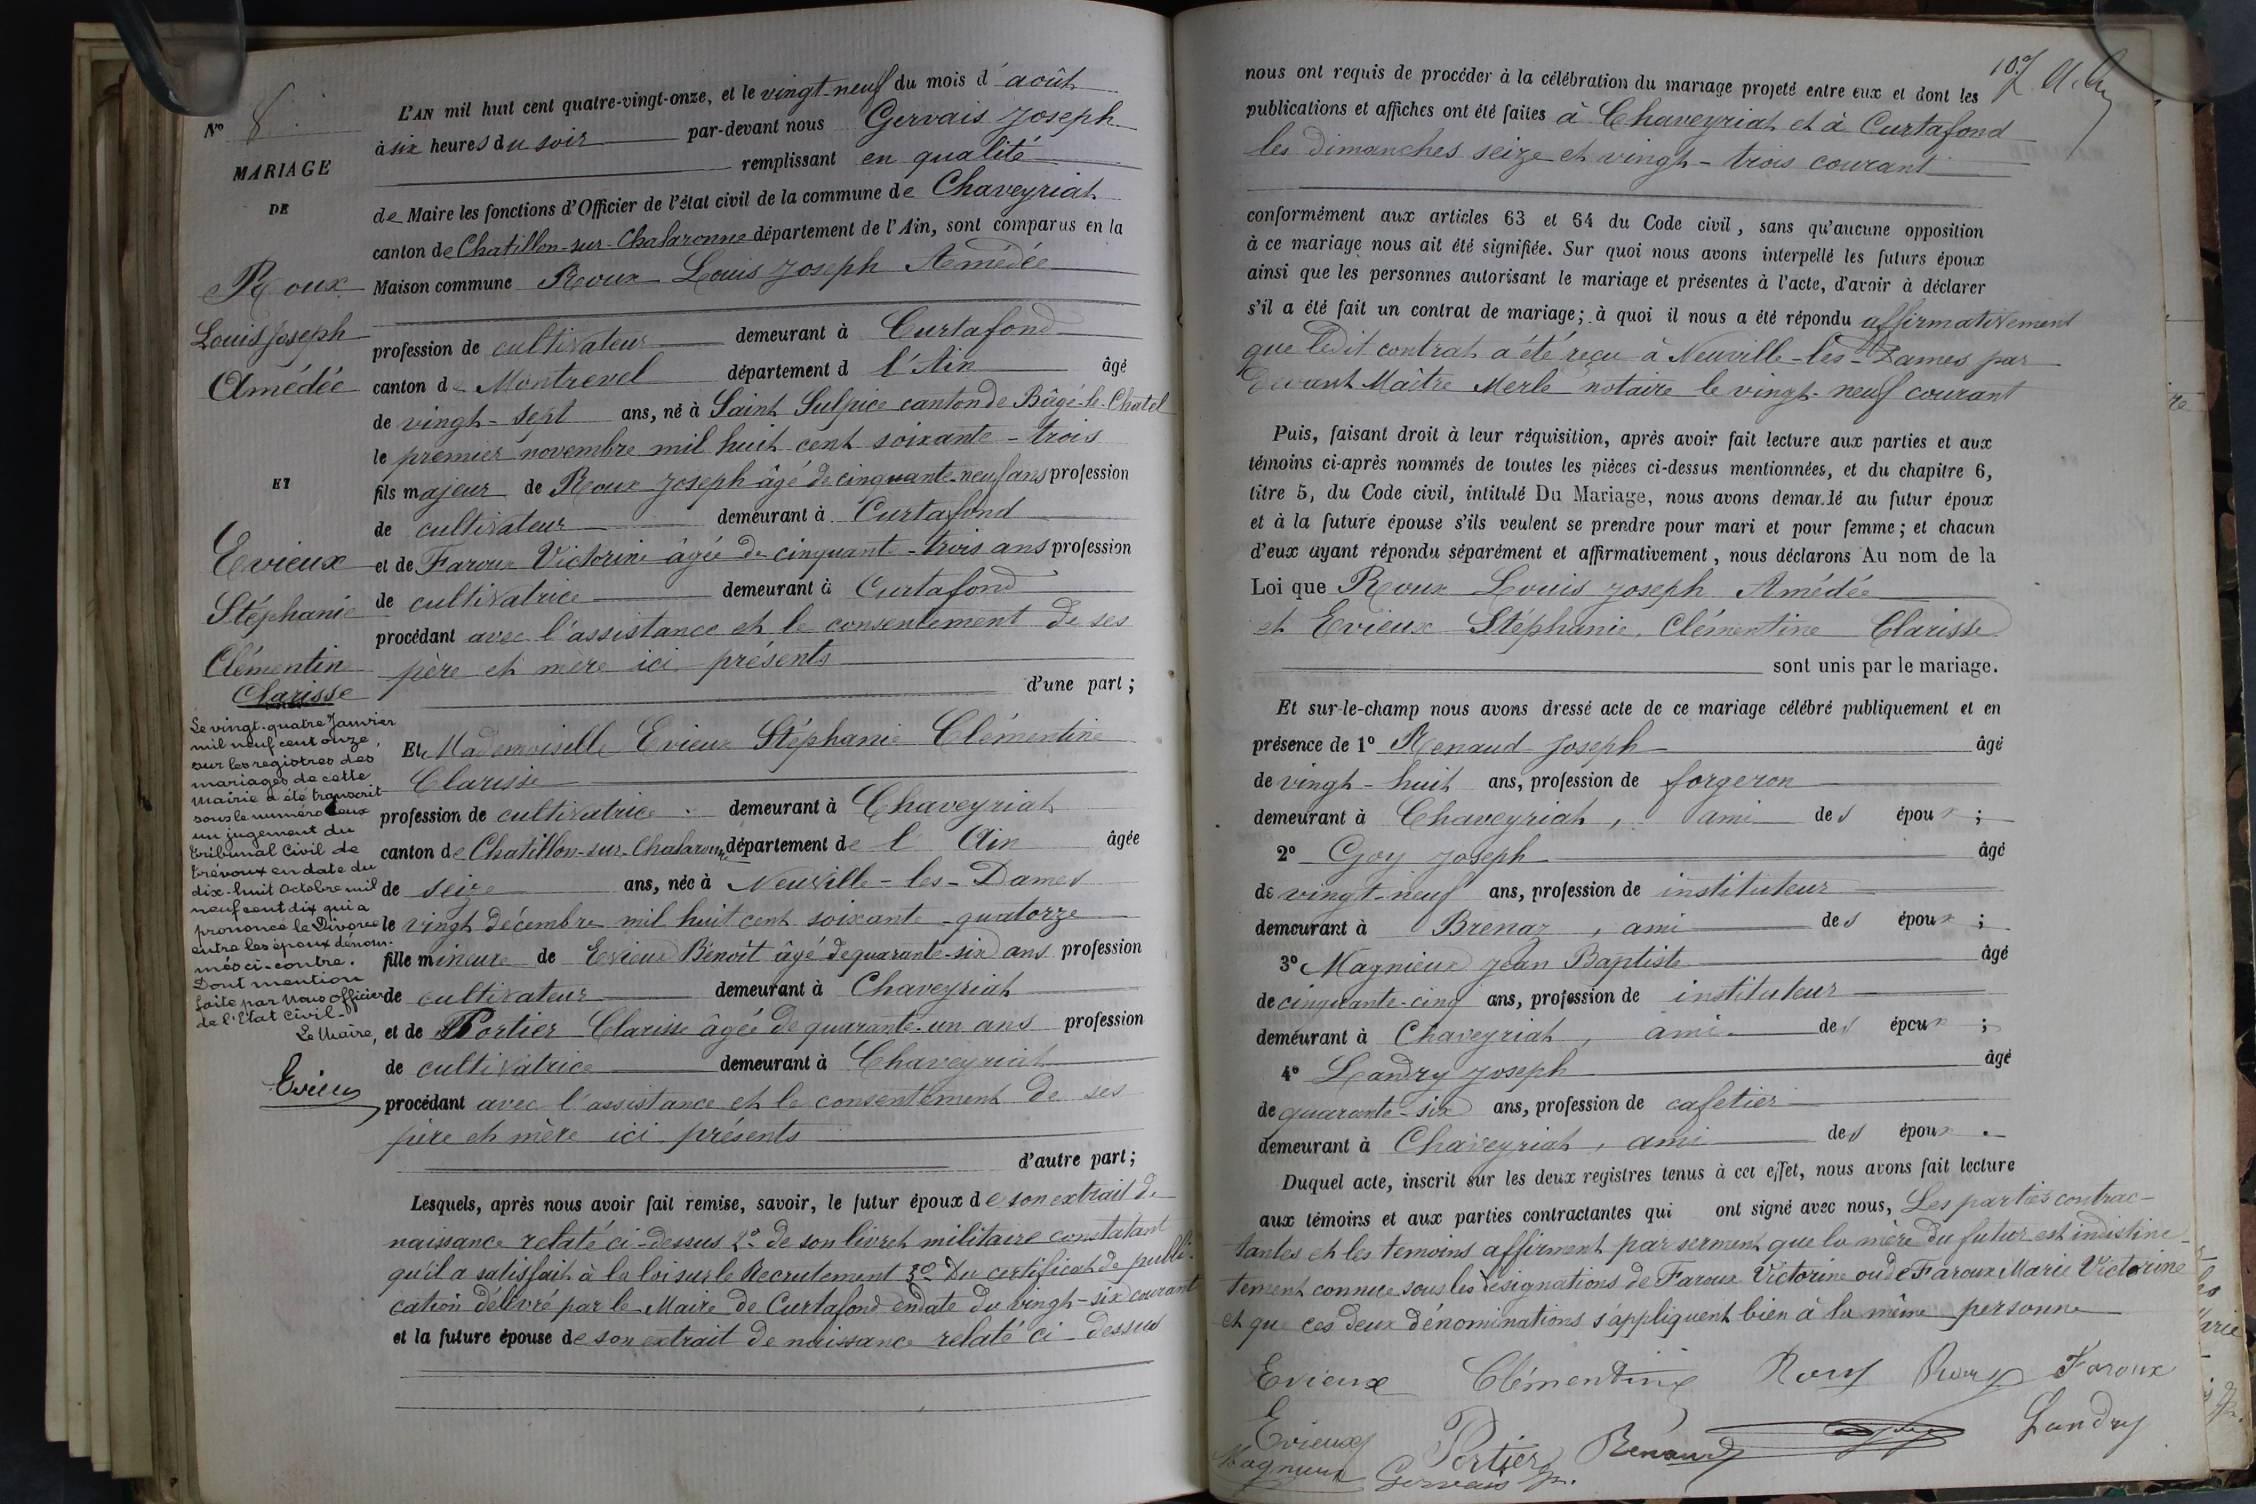 N° 8
MARIAGE
DE
Roux
Louis Joseph
Amédée
ET
Evieux
Stéphanie
Clémentin
Clarisse
Le vingt-quatre Janvier
mil neuf cent onze,
sur les registres des
mariages de cette
Mairie a été transcrit
sous le numéro deux
un jugement du
Tribunal Civil de
Trévoux en date du
dix-huit Octobre mil
neuf cent dix qui a
prononcé le Divorce
entre les époux dénom-
més ci-contre.
Dont mention
faite par Nous officier
de l'Etat Civil.
Le Maire,
Evieux
L'AN mil huit cent quatre-vingt-onze, et le vingt-neuf du mois d'août
à six heures du soir par-devant nous Gervais Joseph
remplissant en qualité
de Maire les fonctions d'Officier de l'état civil de la commune de Chaveyriat
canton de Chatillon-sur-Chalaronne département de l'Ain, sont comparus en la
Maison commune Roux Louis Joseph Amédée
profession de cultivateur demeurant à Curtafond
canton de Montrevel département d l'Ain âgé
de vingt-sept ans, né à Saint Sulpice canton de Bâgé-le-Chatel
le premier novembre mil huit cent soixante-trois
fils majeur de Roux Joseph âgé de cinquante-neuf ans profession
de cultivateur demeurant à Curtafond
et de Faroux Victorine âgée de cinquante-trois ans profession
de cultivatrice demeurant à Curtafond
procédant avec l'assistance et le consentement de ses
père et mère ici présents
d'une part;
Et Mademoiselle Evieux Stéphanie Clémentine
Clarisse
profession de cultivatrice demeurant à Chaveyriat
canton de Chatillon-sur-Chalaronne département de l'Ain âgée
de seize ans, née à Neuville-les-Dames
le vingt décembre mil huit cent soixante-quatorze
fille mineure de Evieux Benoît âgé de quarante-six ans profession
de cultivateur demeurant à Chaveyriat
et de Portier Clarisse âgée de quarante-un ans profession
de cultivatrice demeurant à Chaveyriat
procédant avec l'assistance et le consentement de ses
père et mère ici présents
d'autre part;
Lesquels, après nous avoir fait remise, savoir, le futur époux de son extrait de
naissance relaté ci-dessus 2° de son livret militaire constatant
qu'il a satisfait à la loi sur le Recrutement 3° Du certificat de publi-
cation délivré par le Maire de Curtafond en date du vingt-six courant
et la future épouse de son extrait de naissance relaté ci-dessus
107
nous ont requis de procéder à la célébration du mariage projeté entre eux et dont les
publications et affiches ont été faites à Chaveyriat et à Curtafond
les dimanches seize et vingt-trois courant
conformément aux articles 63 et 64 du Code civil, sans qu'aucune opposition
à ce mariage nous ait été signifiée. Sur quoi nous avons interpellé les futurs époux
ainsi que les personnes autorisant le mariage et présentes à l'acte, d'avoir à déclarer
s'il a été fait un contrat de mariage; à quoi il nous a été répondu affirmativement
que ledit contrat a été reçu à Neuville-les-Dames par
devant Maître Merle notaire le vingt-neuf courant
Puis, faisant droit à leur réquisition, après avoir fait lecture aux parties et aux
témoins ci-après nommés de toutes les pièces ci-dessus mentionnées, et du chapitre 6,
titre 5, du Code civil, intitulé Du Mariage, nous avons demandé au futur époux
et à la future épouse s'ils veulent se prendre pour mari et pour femme; et chacun
d'eux ayant répondu séparément et affirmativement, nous déclarons Au nom de la
Loi que Roux Louis Joseph Amédée
et Evieux Stéphanie Clémentine Clarisse
sont unis par le mariage.
Et sur-le-champ nous avons dressé acte de ce mariage célébré publiquement et en
présence de 1° Renaud Joseph âgé
de vingt-huit ans, profession de forgeron
demeurant à Chaveyriat, ami des époux;
2° Goy Joseph âgé
de vingt-neuf ans, profession de instituteur
demeurant à Brenaz, ami des époux;
3° Magnieux Jean Baptiste âgé
de cinquante-cinq ans, profession de instituteur
demeurant à Chaveyriat, ami des époux;
4° Landry Joseph âgé
de quarante-six ans, profession de cafetier
demeurant à Chaveyriat, ami des époux.
Duquel acte, inscrit sur les deux registres tenus à cet effet, nous avons fait lecture
aux témoins et aux parties contractantes qui ont signé avec nous, Les parties contrac-
tantes et les temoins affirment par serment que la mère du futur est indistinc-
tement connue sous les désignations de Faroux Victorine ou de Faroux Marie Victorine
et que ces deux dénominations s'appliquent bien à la même personne
Evieux Clémentine Roux Roux Faroux
Evieux Portier Renaud Landry
Magnieux Gervais